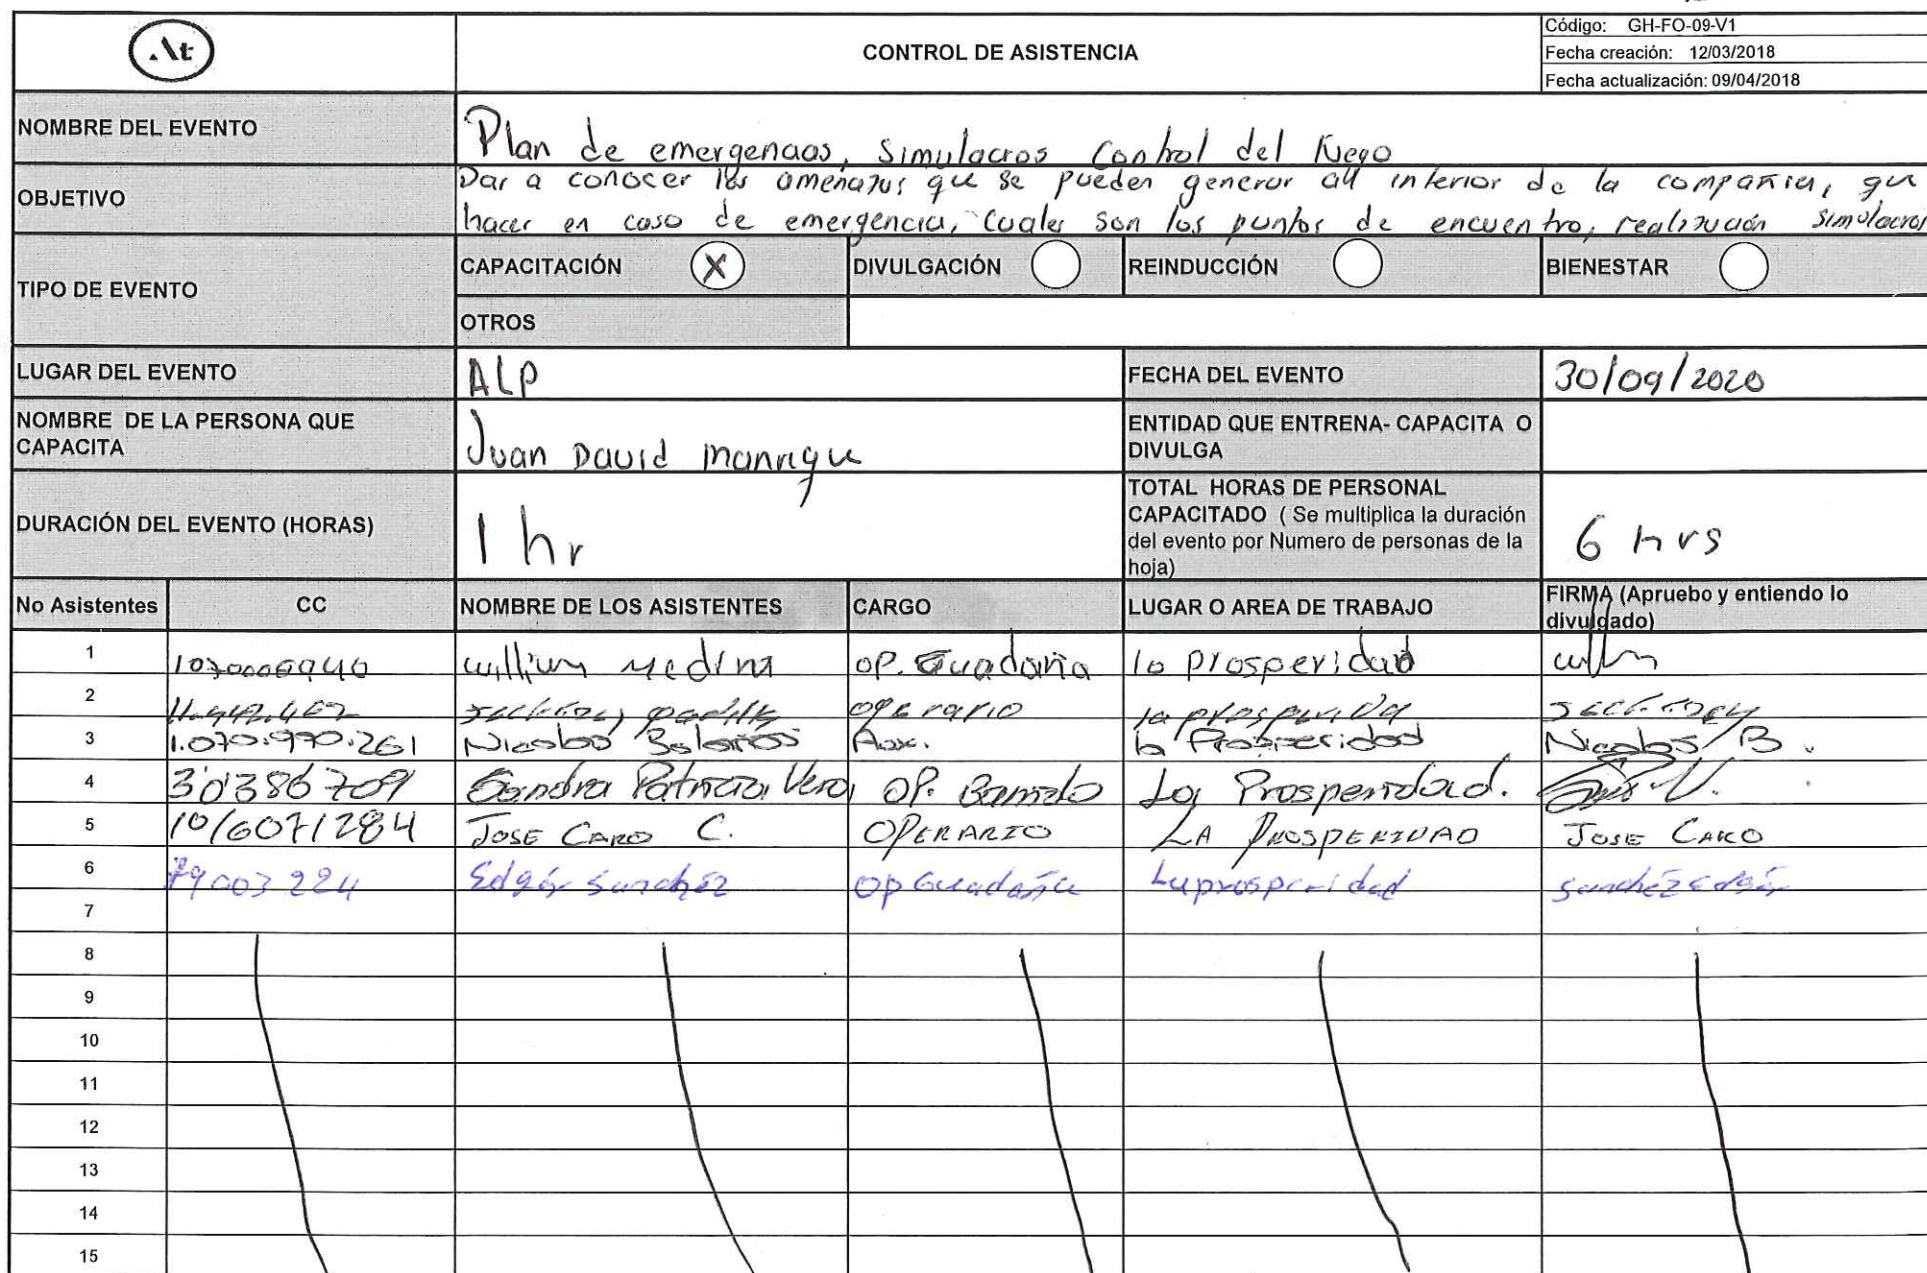 At
CONTROL DE ASISTENCIA
Código: GH-FO-09-V1
Fecha creación: 12/03/2018
Fecha actualización: 09/04/2018
NOMBRE DEL EVENTO
Plan de emergencias, Simulacros Control del fuego
OBJETIVO
Dar a conocer las amenazas que se pueden generar al interior de la compañia, que
hacer en caso de emergencia, cuales son los puntos de encuentro, realización simulacros
TIPO DE EVENTO
CAPACITACIÓN X DIVULGACIÓN REINDUCCIÓN BIENESTAR
OTROS
LUGAR DEL EVENTO ALP FECHA DEL EVENTO 30/09/2020
NOMBRE DE LA PERSONA QUE
CAPACITA
Juan David Manrique
ENTIDAD QUE ENTRENA- CAPACITA O
DIVULGA
DURACIÓN DEL EVENTO (HORAS) 1 hr
TOTAL HORAS DE PERSONAL
CAPACITADO ( Se multiplica la duración
del evento por Numero de personas de la
hoja)
6 hrs
No Asistentes CC NOMBRE DE LOS ASISTENTES CARGO LUGAR O AREA DE TRABAJO FIRMA (Apruebo y entiendo lo
divulgado)
1 1070006940 william Medina OP. Guadaña la prosperidad
2 operario la prosperida
3 1.070.970.261 Nicolas Bolaños Aux. la Prosperidad Nicolas B.
4 Sandra Patricia Vera OP. Barrido La Prosperidad.
5 1016071284 JOSE CARO C. OPERARIO LA PROSPERIDAD JOSE CARO
6 79003224 Edgar Sanchez OP Guadaña La prosperidad sanchez edgar
7
8
9
10
11
12
13
14
15